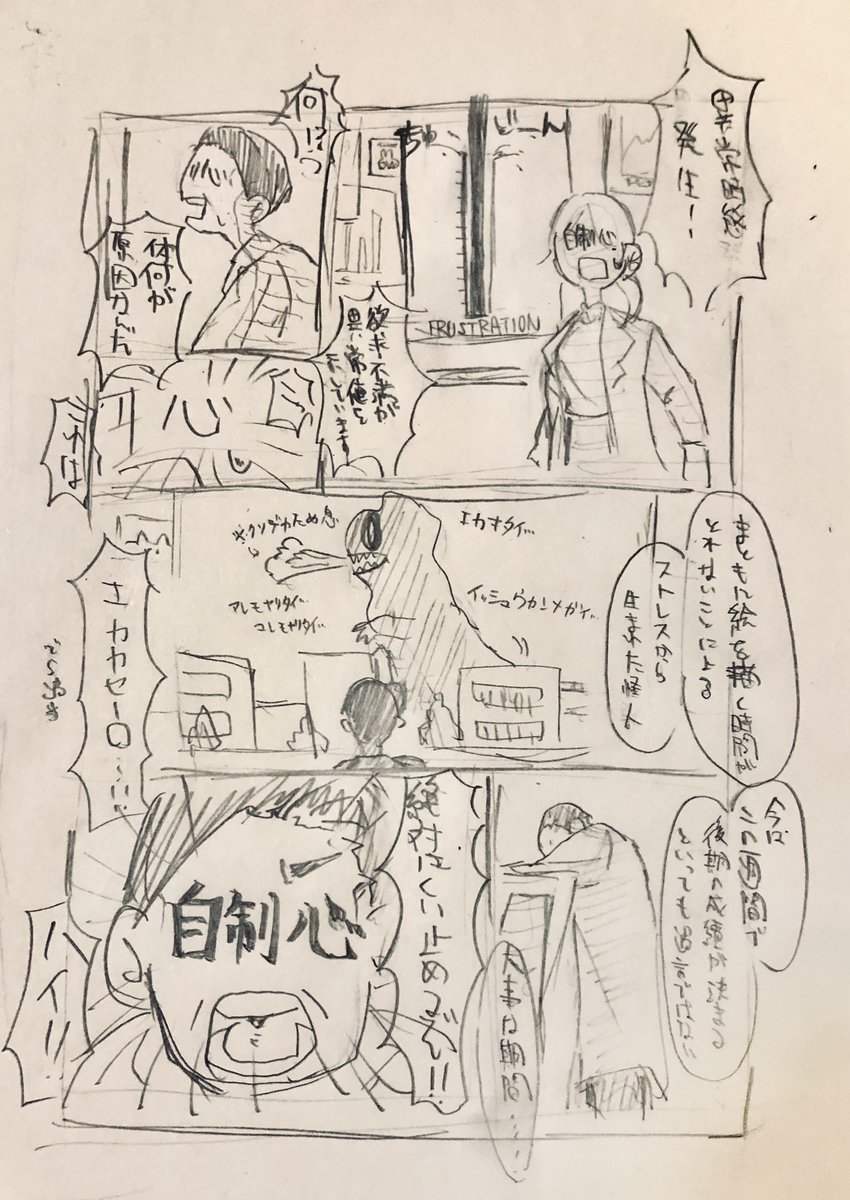 異常事態
発生！
自制心
びーん
ちゅ、
FRUSTRATION
欲求不満が
異常値を
だしています
何!?
一体何が
原因なんだ
心
これは
まともに絵を描く時間が
とれないことによる
ストレスから
生まれた怪人
エカキタイ…
イッシュウカンメガイ…
※クソデカため息
アレモヤリタイ…
コレモヤリタイ…
エカカセーロ…!!
今は
この1週間で
後期の成績が決まる
といっても過言ではない!!
大事な期間…
絶対にくい止めるぞ!!
自制心
ハイ!!